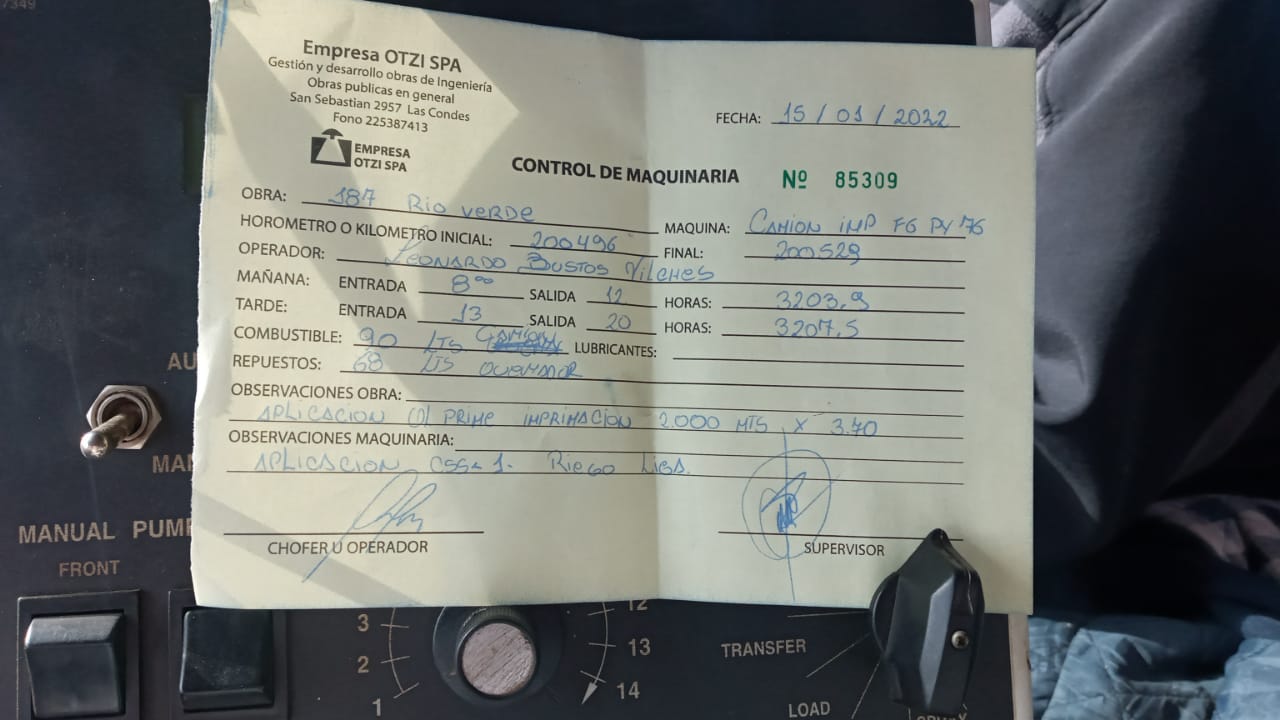 7349
Empresa OTZI SPA
Gestión y desarrollo obras de Ingeniería
Obras publicas en general
San Sebastian 2957 Las Condes
Fono 225387413
EMPRESA
OTZI SPA
FECHA: 15 / 01 / 2022
CONTROL DE MAQUINARIA Nº 85309
OBRA: 187 Rio Verde
MAQUINA: CAMION IMP FG PY 76
HOROMETRO O KILOMETRO INICIAL: 200496 FINAL: 200529
OPERADOR: LEONARDO BUSTOS VILCHES
MAÑANA: ENTRADA 8°° SALIDA 12 HORAS: 3203,9
TARDE: ENTRADA 13 SALIDA 20 HORAS: 3207,5
COMBUSTIBLE: 90 LTS CAMION LUBRICANTES:
REPUESTOS: 68 LTS QUEMADOR
OBSERVACIONES OBRA:
APLICACION PRIME IMPRIMACION 2.000 MTS X 3.70
OBSERVACIONES MAQUINARIA:
APLICACION CSS-1. RIEGO LIGA.
CHOFER U OPERADOR SUPERVISOR
AU
MA
MANUAL PUMP
FRONT
3
2
1
12
13
14
TRANSFER
LOAD